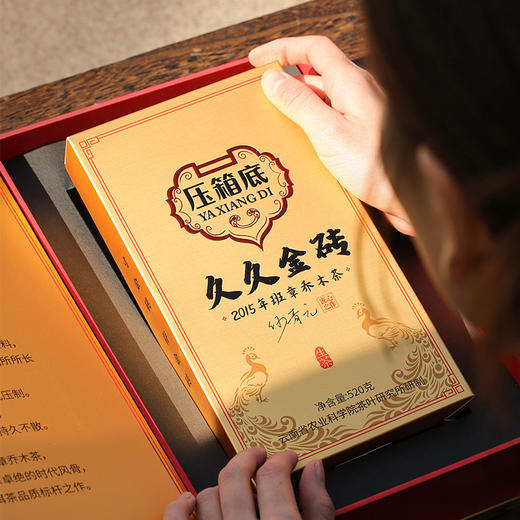 压箱底
YA XIANG DI
久久金砖
2015年班章乔木茶
生茶
净含量:520克
云南省农业科学院茶叶研究所研制
料,
所所长
压制。
持久不散。
章乔木茶,
卓绝的时代风骨,
洱茶品质标杆之作。